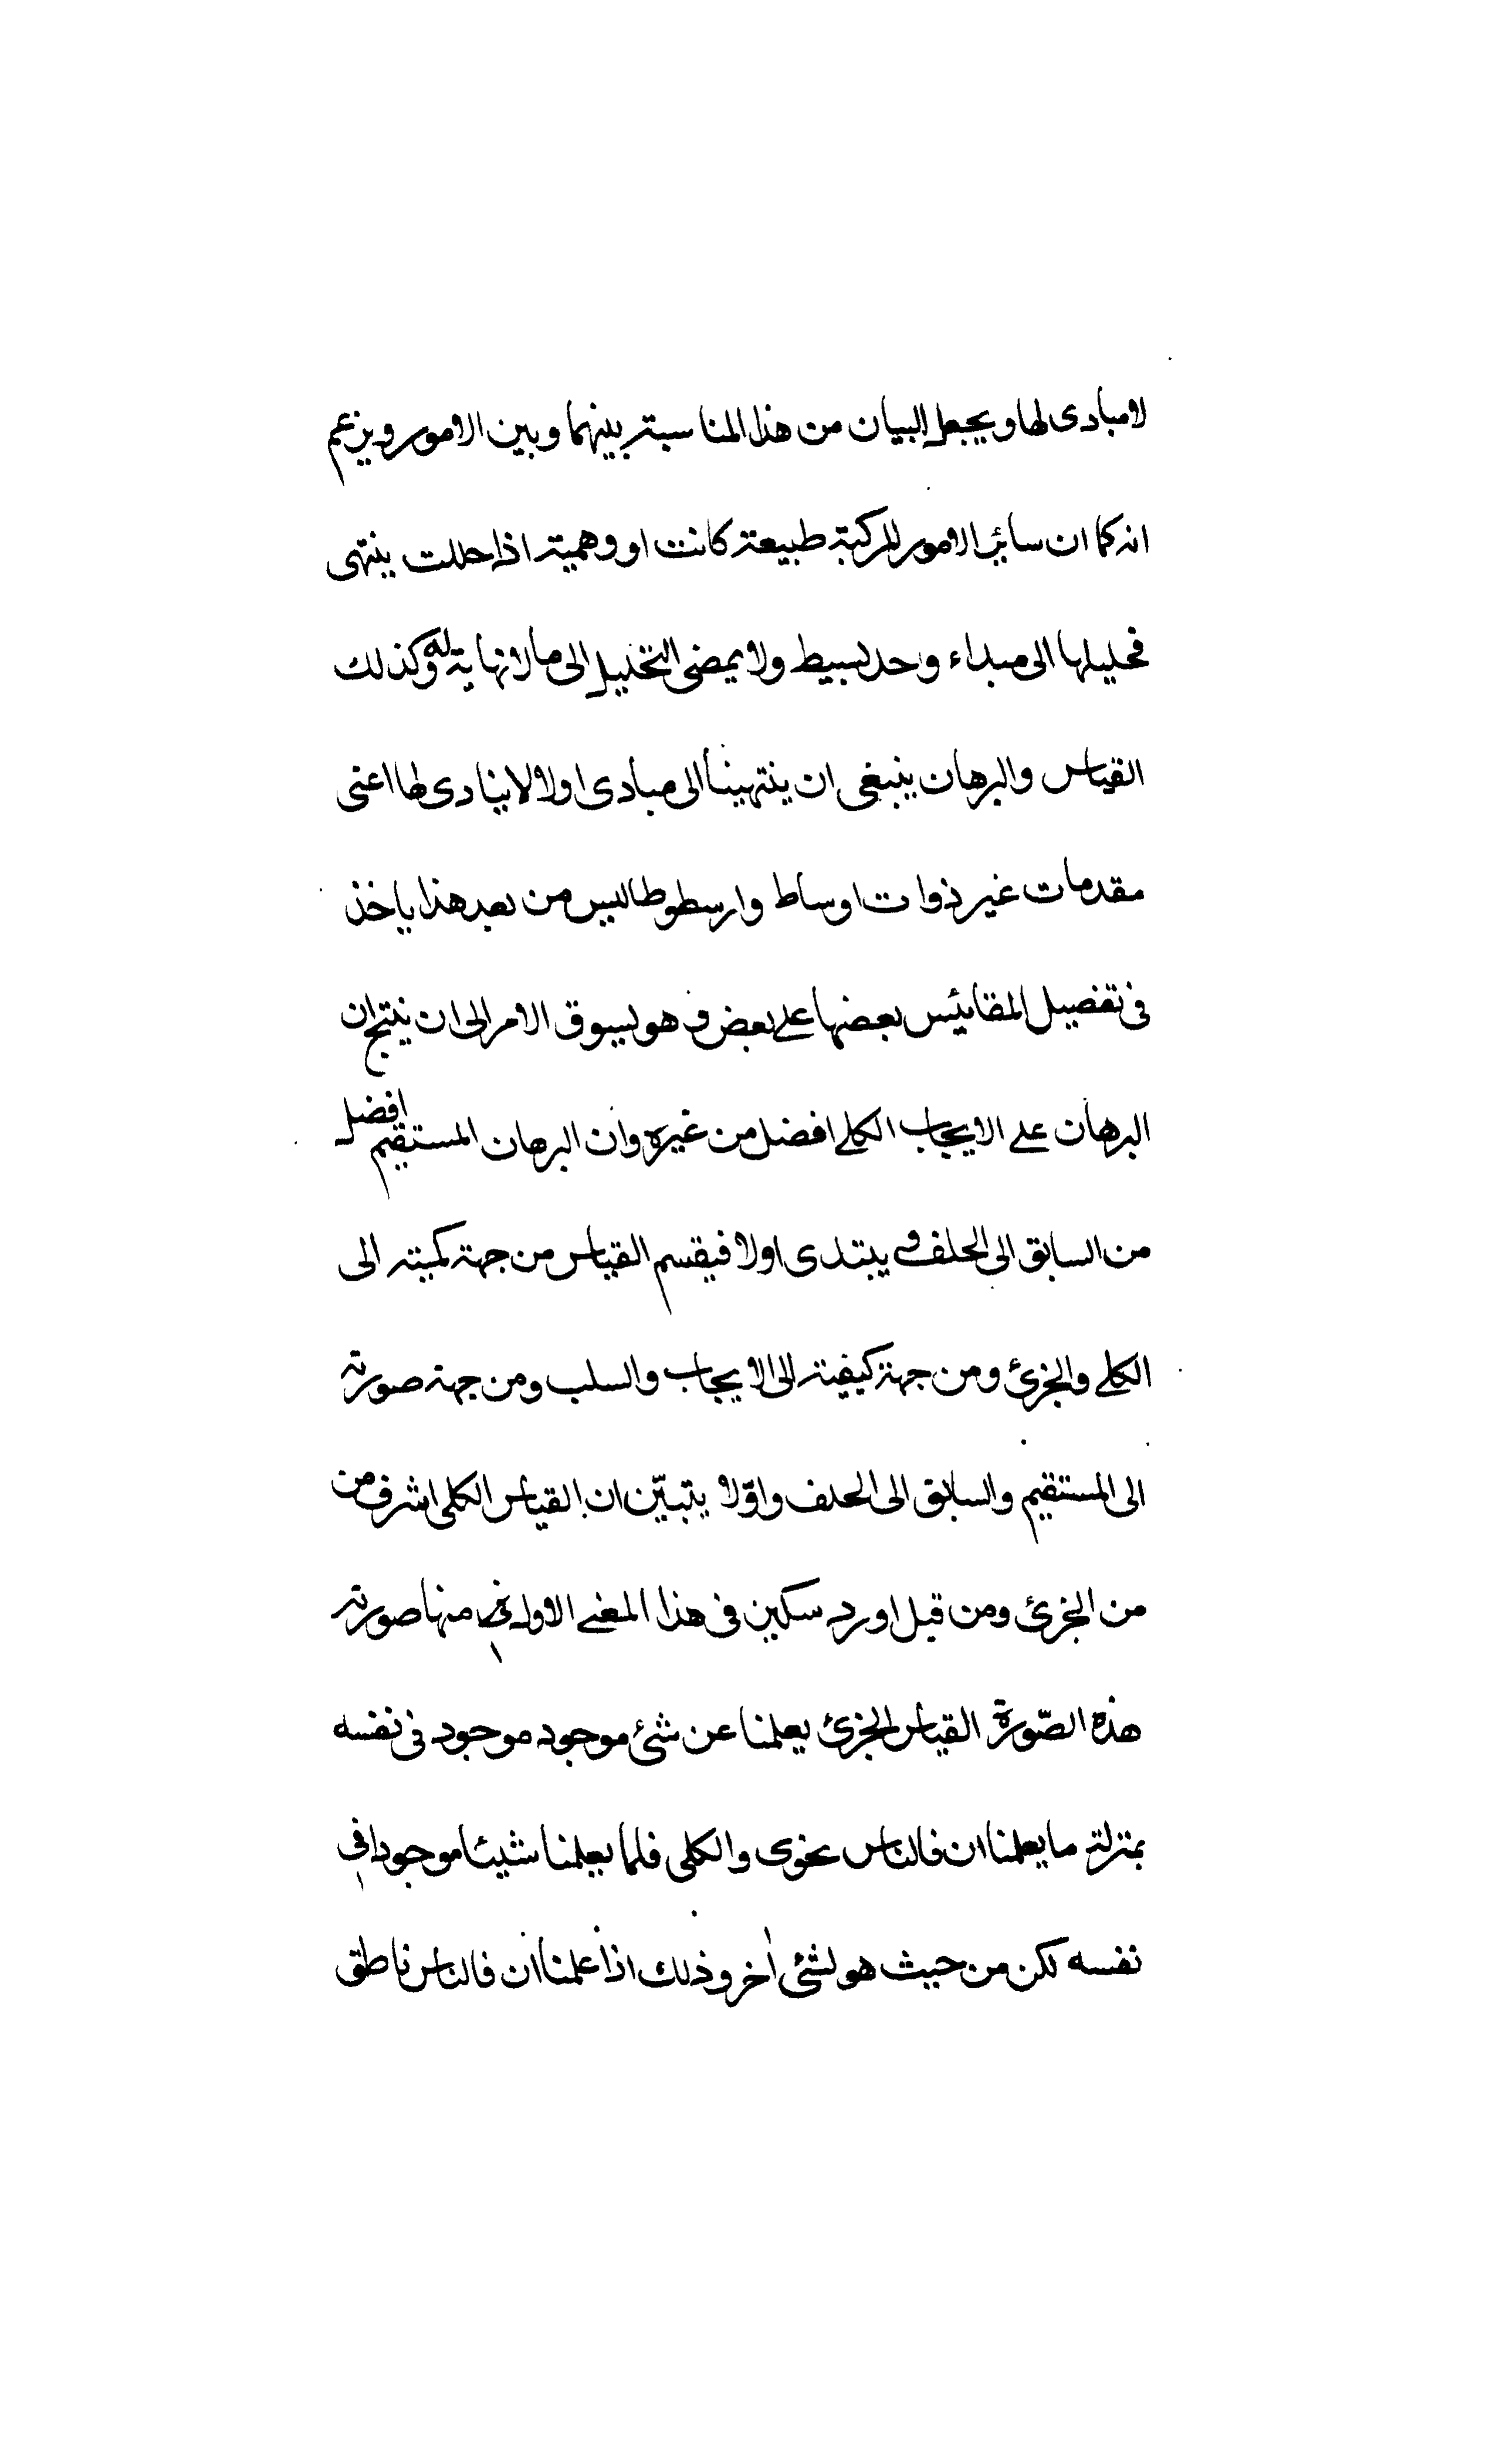 لا مبادى لها ويجعل البيان من هذا المناسبة بينهما وبين الامور ويزعم
انه كما ان سائر الامور المركبة طبيعة كانت او وهمية اذا حللت ينتهى
تحليلها الى مبداء واحد بسيط ولا يمضى التحليل الى ما لا نهاية له وكذلك
القياس والبرهان ينبغى ان ينتهينا الى مبادى اولا لا ينادى لها اعنى
مقدمات غير ذوات اوساط وارسطوطاليس من بعد هذا ياخذ
فى تفصيل المقائيس بعضها على بعض وهو يسوق الامر الى ان ينتج ان
البرهان على الايجاب الكلى افضل من غيره وان البرهان المستقيم افضل
من السابق الى الخلف و يبتدى اولا فيقسم القياس من جهة كميته الى
الكلى والجزئ ومن جهة كيفيته الى الايجاب والسلب ومن جهة صورته
الى المستقيم والسابق الى الخلف واوّلا يتبيّن ان القياس الكلى اشرف من
من الجزئ ومن قبل اورد سكين فى هذا المعنى الاوله منها صورته
هذه الصّورة القياس الجزئ يعلمنا عن شئ موجود موجود فى نفسه
بمنزلة ما يعلمنا ان فالناس نحوى والكلى فلما يعلمنا شيئا موجودا فى
نفسه لكن من حيث هو لشئ اخر وذلك اذا علمنا ان فالناس ناطق